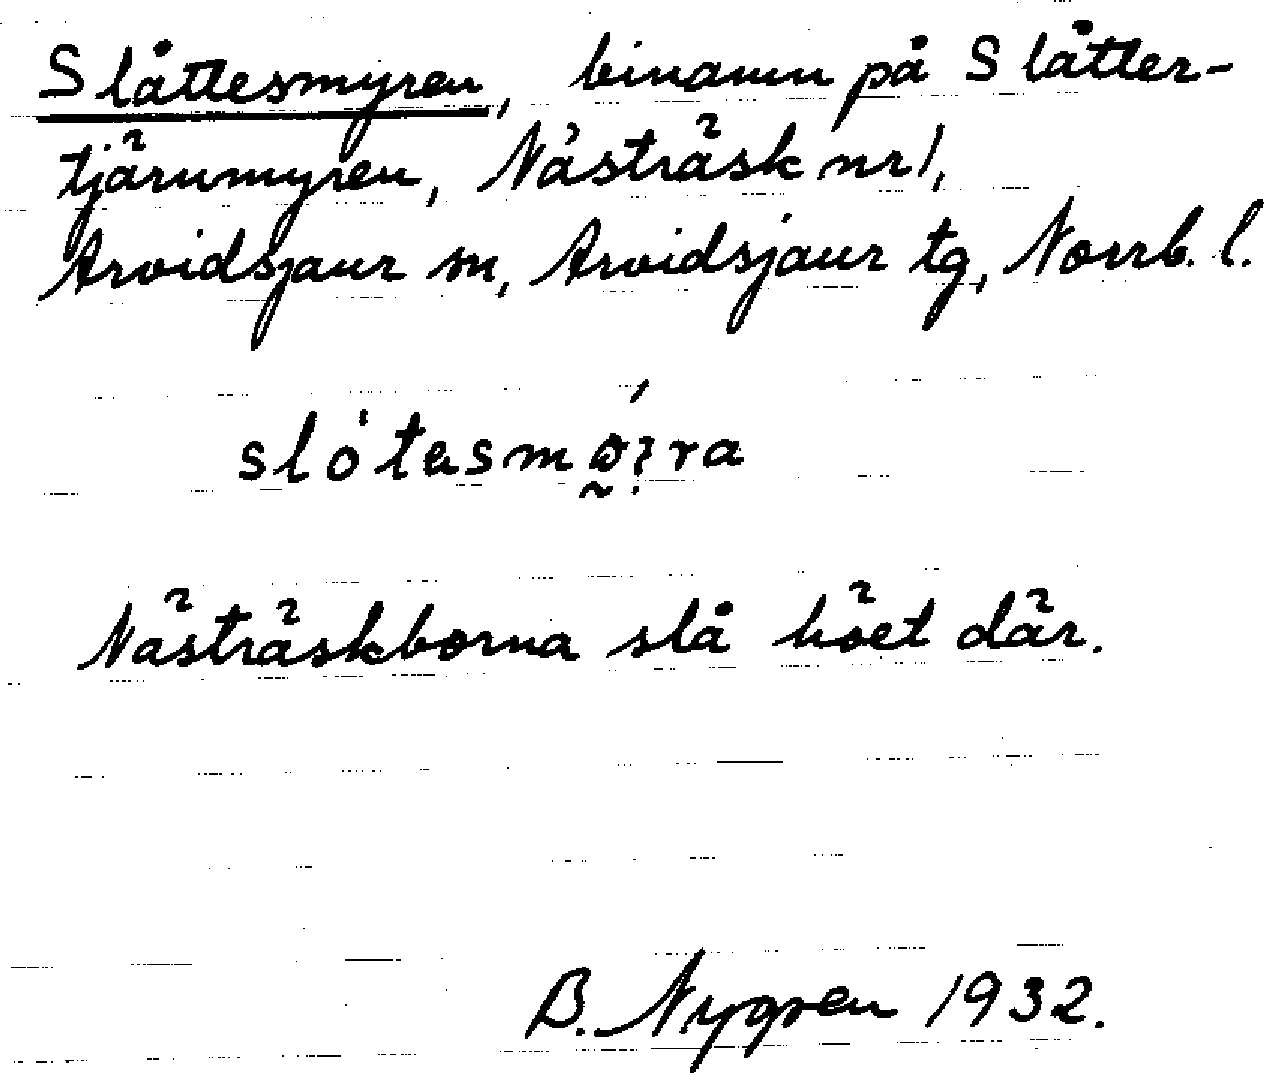 Slåttesmyren, binamn på Slåtter-
tjärnmyren, Nåsträsk nr 1,
Arvidsjaur sn, Arvidsjaur tg, Norrb. l.
Nästräskborna slå höet där.
B. Nygren 1932.